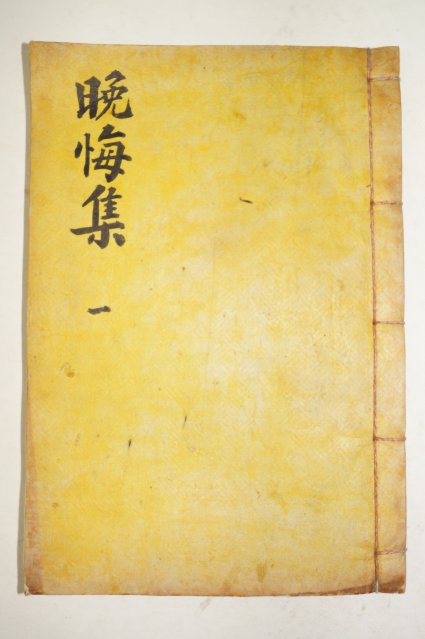 晩悔集
一